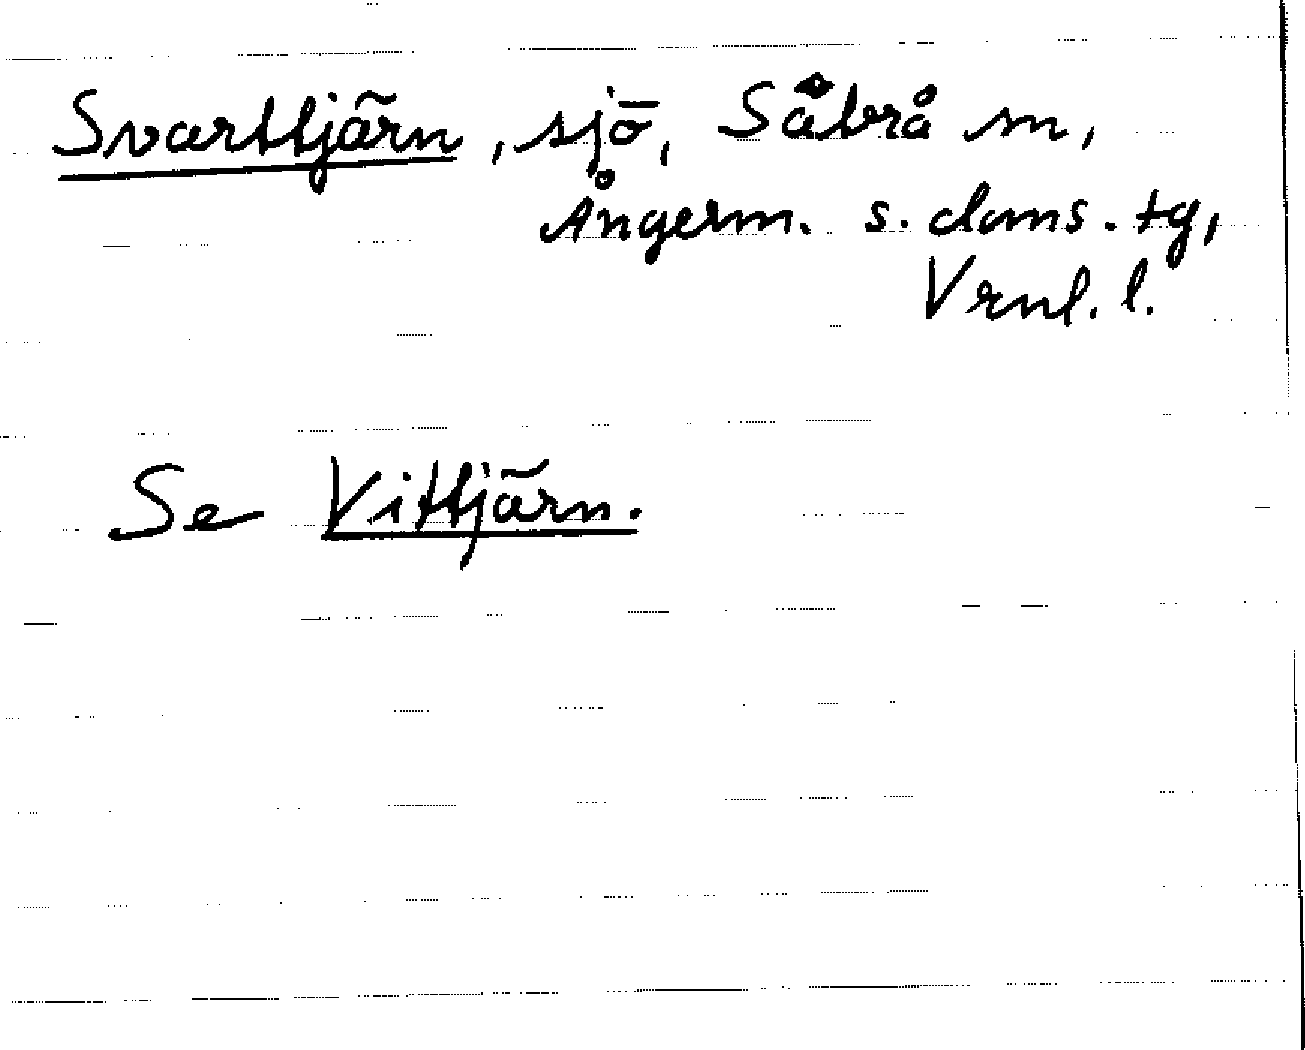 Svarttjärn, sjö, Såbrå sn,
Ångerm. s. doms. tg,
Vrnl. l.
Se Vittjärn.